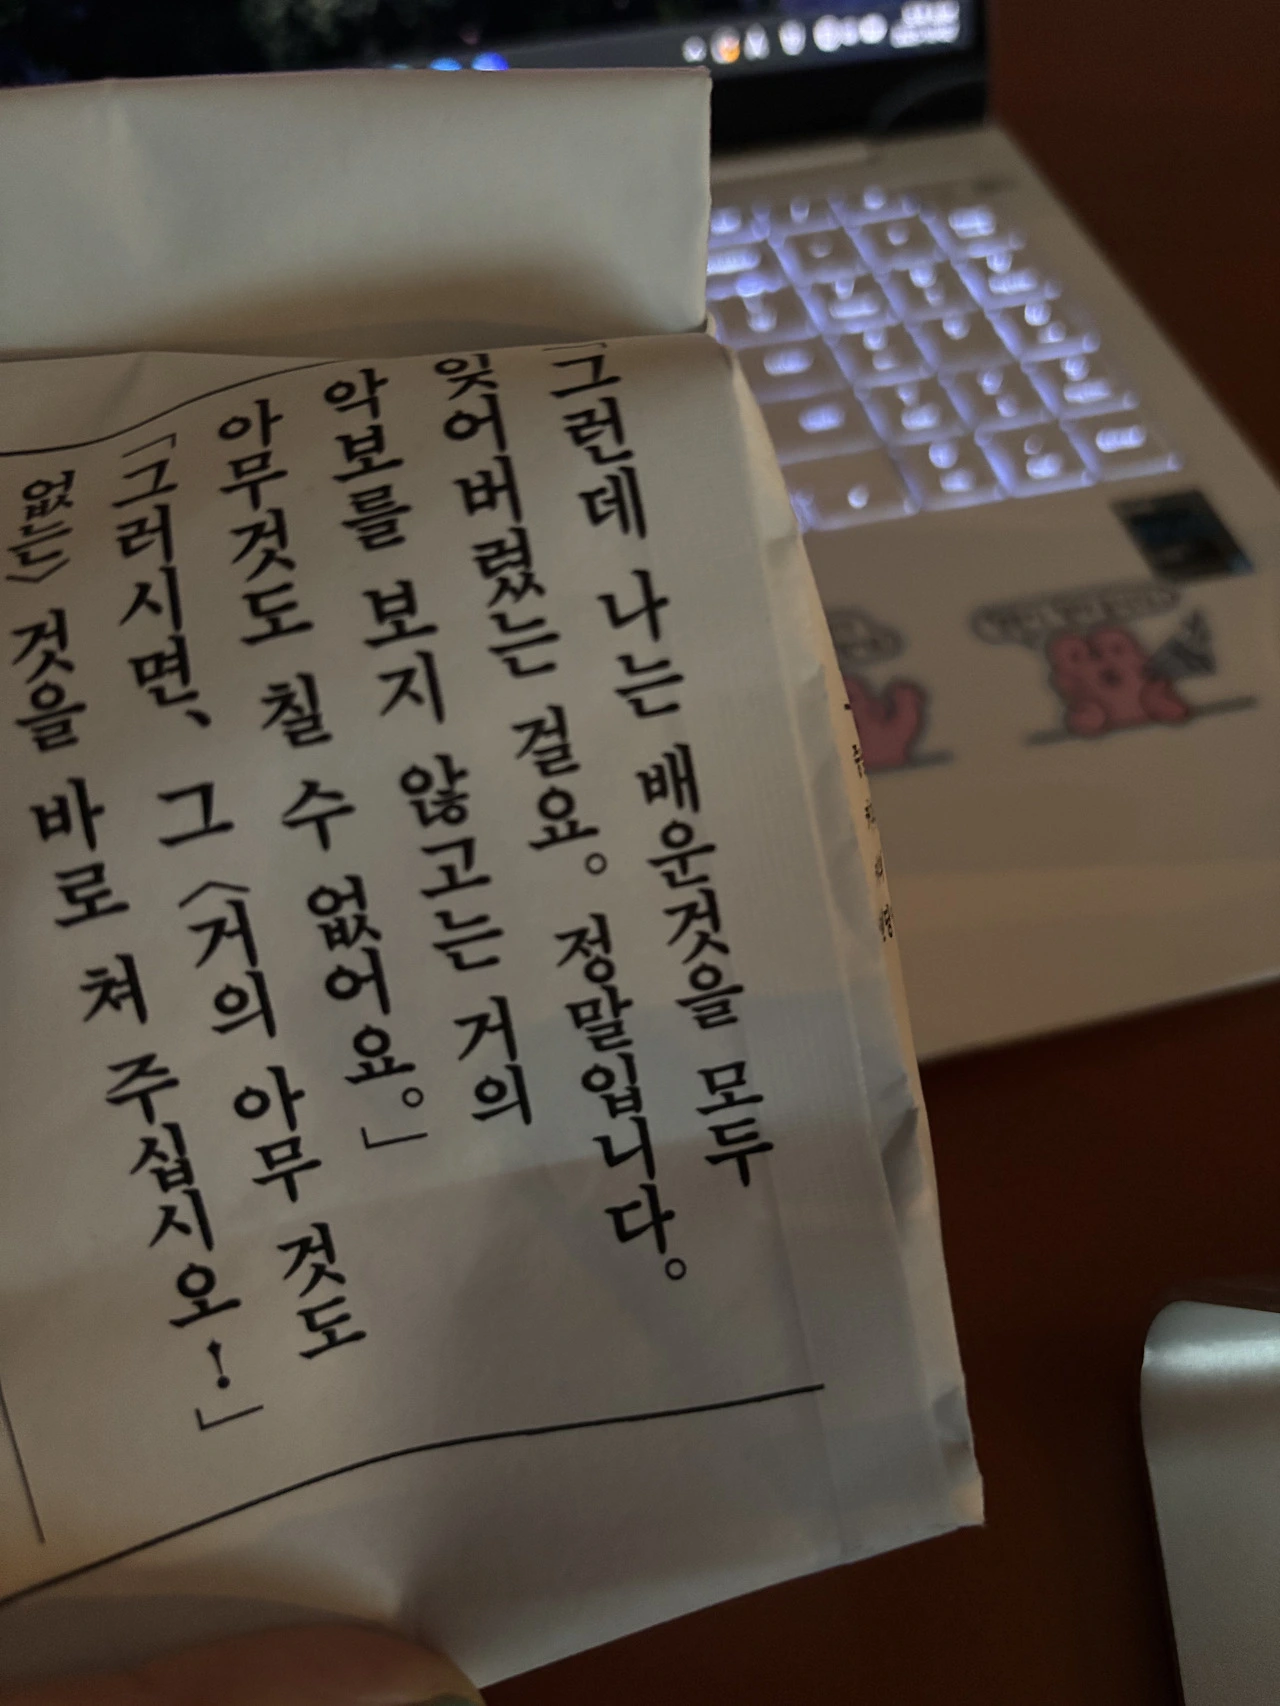 「그런데 나는 배운것을 모두
잊어버렸는 걸요。 정말입니다。
악보를 보지 않고는 거의
아무것도 칠 수 없어요。」
「그러시면、 그 〈거의 아무 것도
없는〉 것을 바로 쳐 주십시오!」